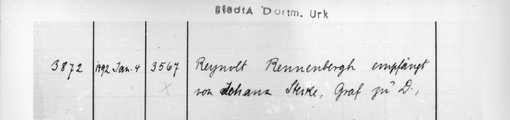 StadtA Dortm. Urk
3872 1492 Jan. 4 3567 Reynolt Rennenbergh empfängt
von Johann Stecke, Graf zu D.,